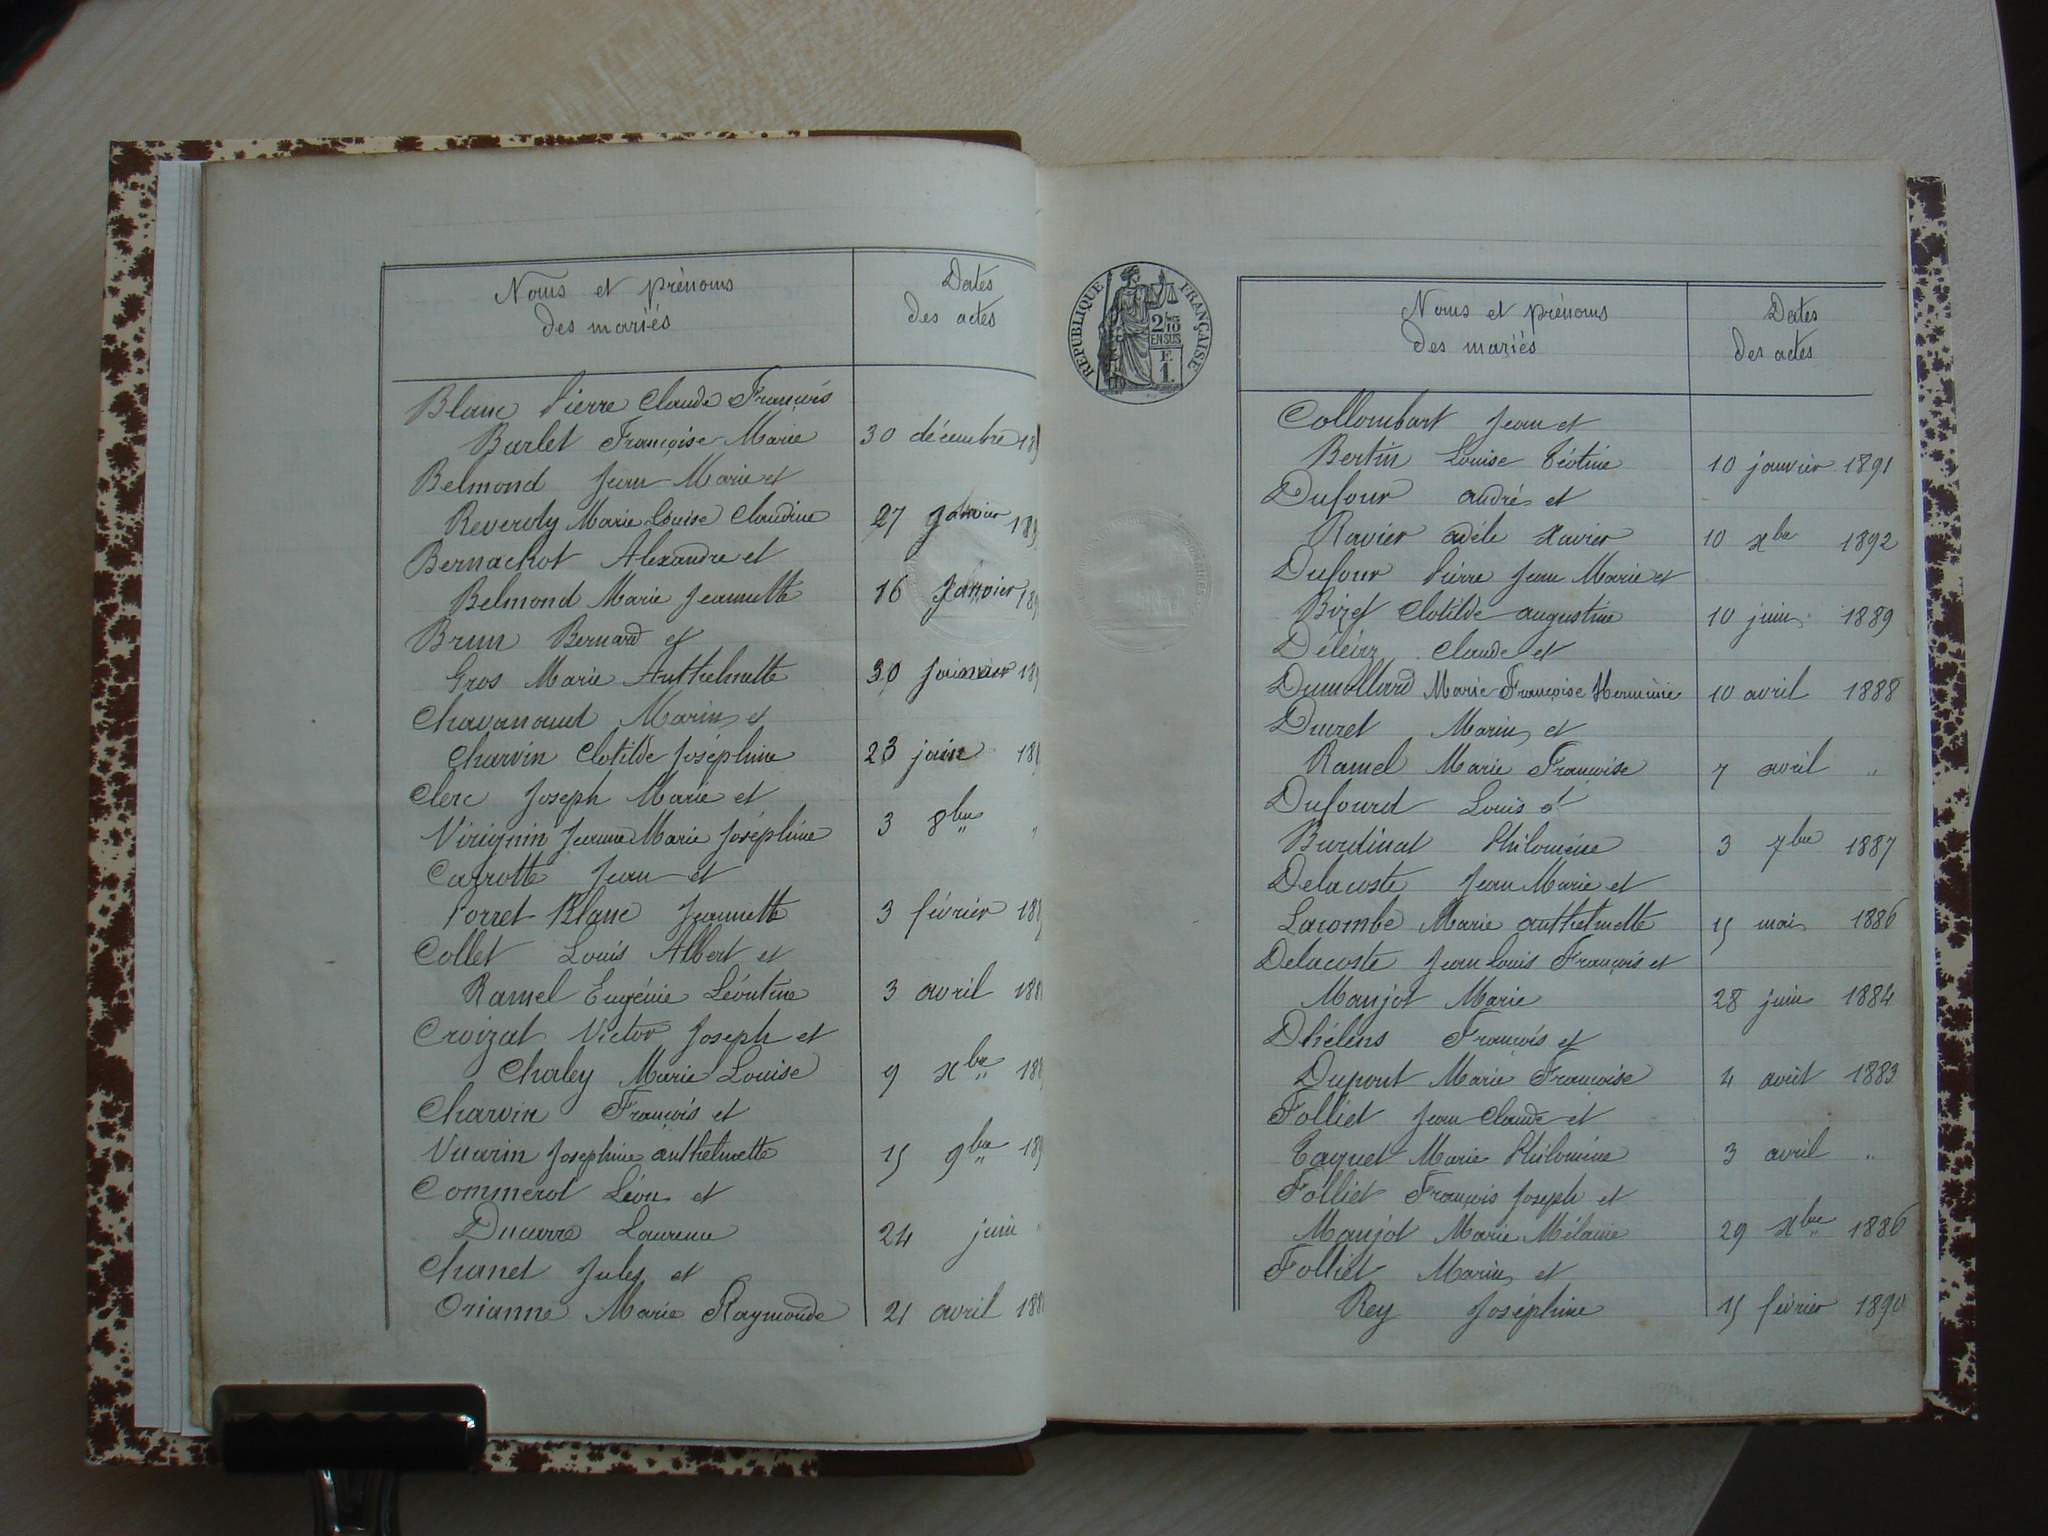 Noms et prénoms
des mariés
Dates
des actes
Blanc Pierre Claude François
Barlet Françoise Marie 30 décembre 18
Belmond Jean Marie et
Reverdy Marie Louise Claudine 27 Janvier 18
Bernachot Alexandre et
Belmond Marie Jeannette 16 Janvier 18
Brun Bernard et
Gros Marie Anthelmette 30 18
Chavanoud Marin et
Charvin Clotilde Joséphine 23 juin 18
Clerc Joseph Marie et
Virignin Jeanne Marie Joséphine 3 8bre "
Carrotte Jean et
Porret-Blanc Jeannette 3 février 18
Collet Louis Albert et
Ramel Eugénie Léontine 3 avril 188
Croizat Victor Joseph et
Chaley Marie Louise 9 xbre 18
Charvin François et
Vuarin Josephine anthelmette 15 9bre 18
Commerot Léon et
Ducarre Laurence 24 juin "
Chanet Jules et
Orianne Marie Raymonde 21 avril 188
RÉPUBLIQUE FRANÇAISE
2/10
EN SUS
F.
1.
Noms et prénoms
des mariés
Dates
des actes
Collombart Jean et
Bertin Louise 10 janvier 1891
Dufour André et
Ravier adèle Xavier 10 xbre 1892
Dufour Pierre Jean Marie et
Bizet Clotilde augustine 10 juin 1889
Claude et
Dumollard Marie Françoise Herminie 10 avril 1888
Ducret Marin et
Ramel Marie Françoise 7 avril "
Dufourd Louis et
Burdinat Philomène 3 7bre 1887
Delacoste Jean Marie et
Lacombe Marie anthelmette 15 mai 1886
Delacoste Jean Louis François et
Manjot Marie 28 juin 1884
Dhélens François et
Dupont Marie Françoise 4 août 1883
Folliet Jean Claude et
Taguet Marie Philomène 3 avril "
Folliet François Joseph et
Manjot Marie Mélanie 29 xbre 1886
Folliet Marin et
Rey Joséphine 15 février 1890